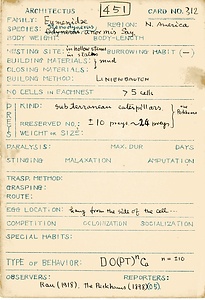 ARCHITECTUS 451 CARD NO. 312
FAMILY: Eumenidae REGION: N. America
SPECIES: anormis Say
BODY WEIGHT BODY-LENGTH
NESTING SITE: in hollow stems BURROWING HABIT (—)
BUILDING MATERIALS: } mud
CLOSING MATERIALS:
BUILDING METHOD: LINIENBAUTEN
NO. CELLS IN EACH NEST > 5 cells
PREY KIND: subterranean caterpillars.
PRESERVED NO.: ± 10 preys ~ 24 preys
WEIGHT OR SIZE:
PARALYSIS: MAX. DUR DAYS
STINGING MALAXATION AMPUTATION
TRASP. METHOD:
GRASPING:
ROUTE:
EGG LOCATION: hung from the side of the cell...
COMPETITION COLONIZATION SOCIALIZATION
SPECIAL HABITS:
TYPE OF BEHAVIOR: DO(PT)ⁿC n = ≥10
OBSERVERS: REPORTERS:
Rau (1918). The Peckhams (1898) (05).